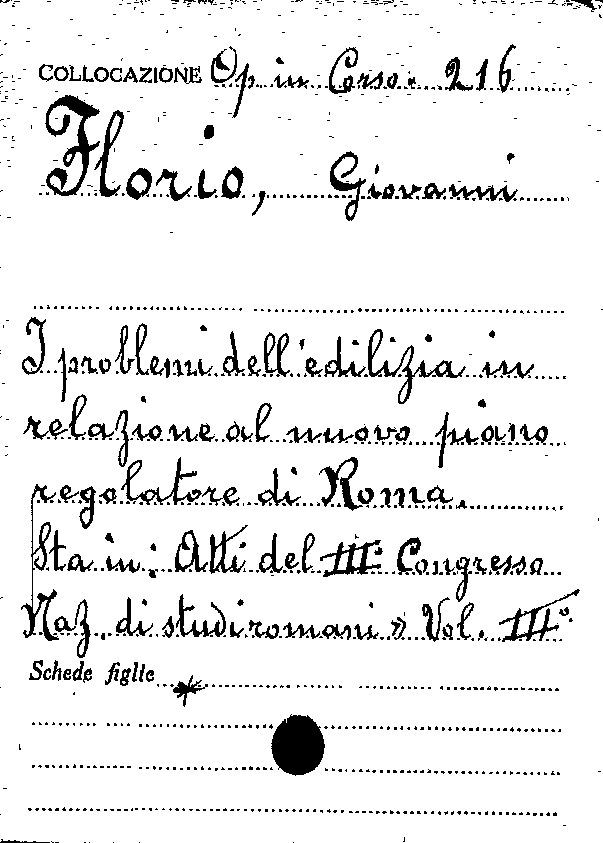 COLLOCAZIONE Op in Corso. 216
Florio, Giovanni
I problemi dell'edilizia in
relazione al nuovo piano
regolatore di Roma.
Sta in: Atti del III° Congresso
Naz. di studi romani » Vol. III°.
Schede figlie